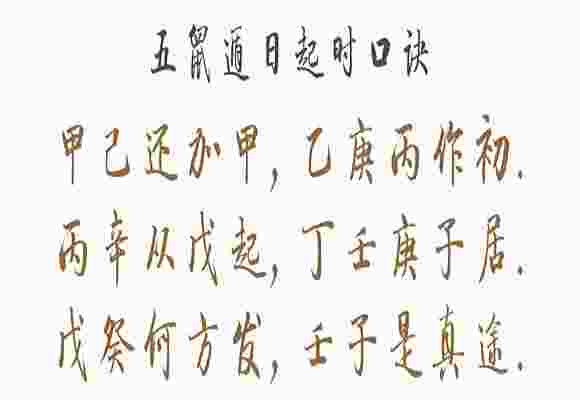 五鼠遁日起时口诀
甲己还加甲,乙庚丙作初.
丙辛从戊起,丁壬庚子居.
戊癸何方发,壬子是真途.